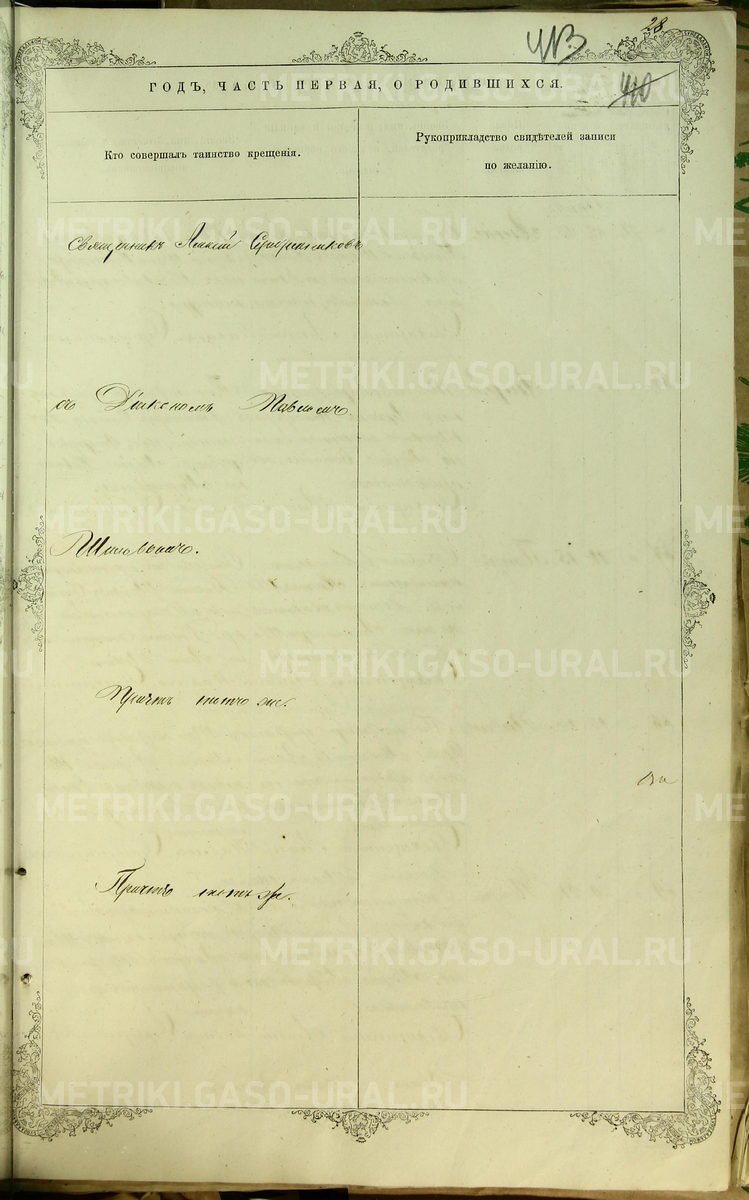 28
413
410
ГОДЪ, ЧАСТЬ ПЕРВАЯ, О РОДИВШИХСЯ.
Кто совершалъ таинство крещенія.
Рукоприкладство свидѣтелей записи
по желанію.
Священникъ
съ Діакономъ Павломъ
Причтъ тотъ же.
Причтъ тотъ же.
METRIKI.GASO-URAL.RU